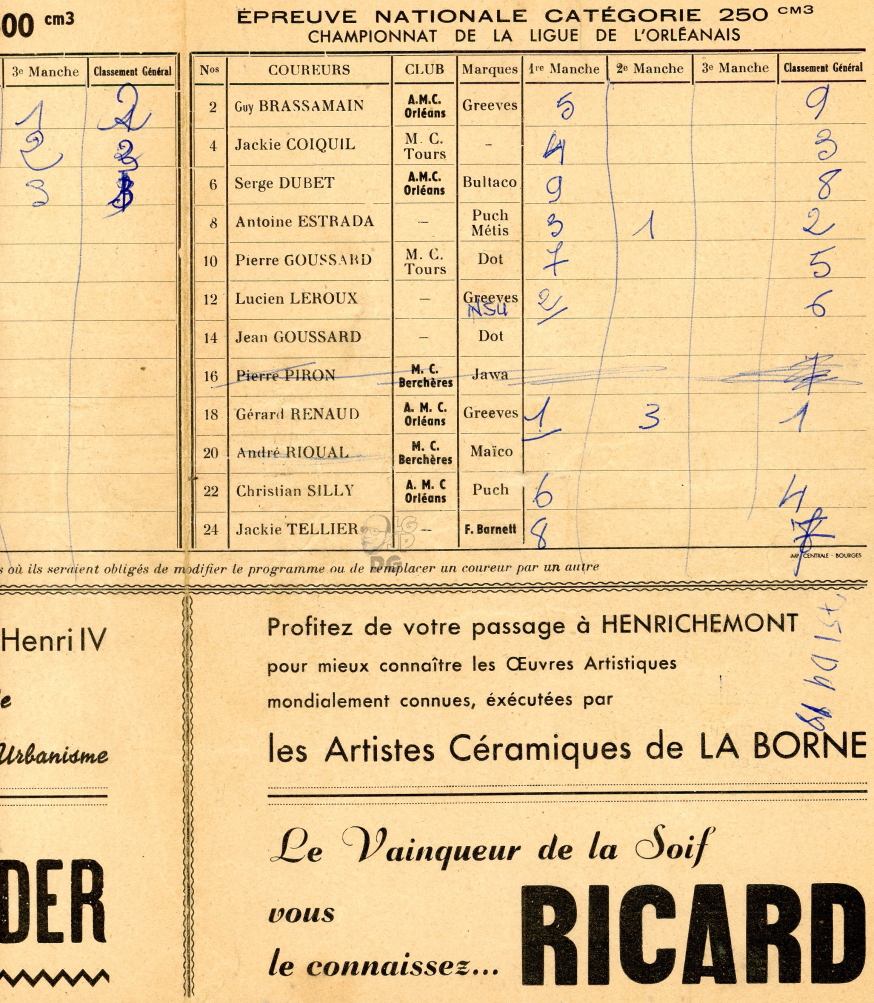 00 cm3
3e Manche Classement Général
1 2
2 3
3
ÉPREUVE NATIONALE CATÉGORIE 250 CM3
CHAMPIONNAT DE LA LIGUE DE L'ORLÉANAIS
Nos COUREURS CLUB Marques 1re Manche 2e Manche 3e Manche Classement Général
2 Guy BRASSAMAIN A.M.C. Orléans Greeves 5 9
4 Jackie COIQUIL M. C. Tours – 4 3
6 Serge DUBET A.M.C. Orléans Bultaco 9 8
8 Antoine ESTRADA – Puch Métis 3 1 2
10 Pierre GOUSSARD M. C. Tours Dot 7 5
12 Lucien LEROUX – Greeves NSU 2 6
14 Jean GOUSSARD – Dot
16 Pierre PIRON M. C. Berchères Jawa 7
18 Gérard RENAUD A. M. C. Orléans Greeves 1 3 1
20 André RIOUAL M. C. Berchères Maïco
22 Christian SILLY A. M. C Orléans Puch 6 4
24 Jackie TELLIER – F. Barnett 8 7
IMP. CENTRALE - BOURGES
s où ils seraient obligés de modifier le programme ou de remplacer un coureur par un autre
DG
Henri IV
Urbanisme
DER
Profitez de votre passage à HENRICHEMONT
pour mieux connaître les Œuvres Artistiques
mondialement connues, éxécutées par
les Artistes Céramiques de LA BORNE
Le Vainqueur de la Soif
vous
le connaissez...
RICARD